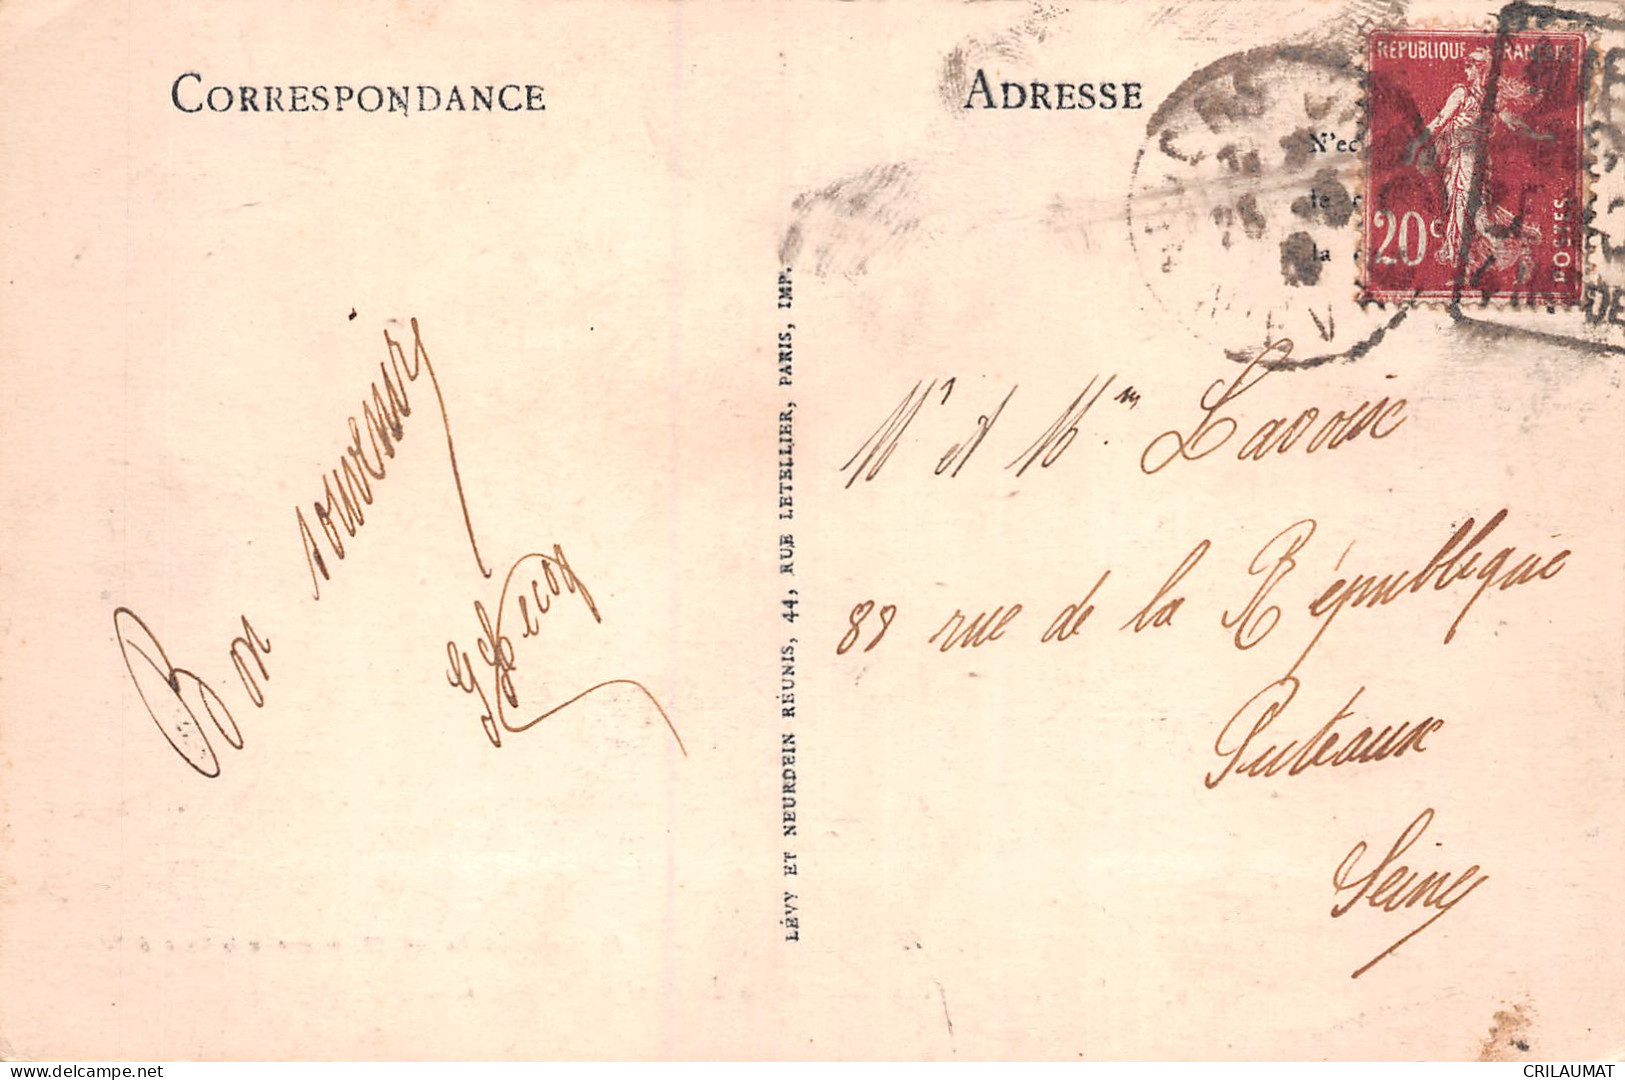 CORRESPONDANCE
Bon souvenir
G Lecoq
LÉVY ET NEURDEIN RÉUNIS, 44, RUE LETELLIER, PARIS, IMP.
ADRESSE
N'ec
le
la
REPUBLIQUE FRANÇAISE
20c
POSTES
DE
Mr et Mme Lavoix
88 rue de la République
Puteaux
Seine
www.delcampe.net
CRILAUMAT